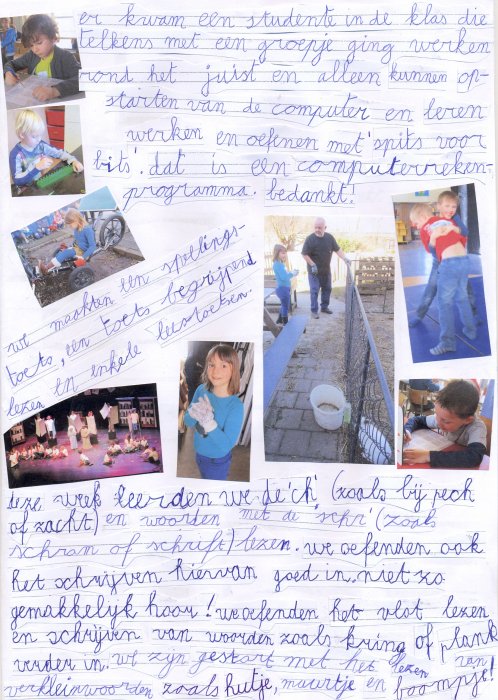 er kwam een studente in de klas die
telkens met een groepje ging werken
rond het juist en alleen kunnen op-
starten van de computer en leren
werken en oefenen met 'spits voor
bits'. dat is een computerreken-
programma. bedankt!
we maakten een spellings-
toets, een toets begrijpend
lezen en enkele leestoetsen.
deze week leerden we de 'ch' (zoals bij pech
of zacht) en woorden met de 'schr' (zoals
schram of schrift) lezen. we oefenden ook
het schrijven hiervan goed in. niet zo
gemakkelijk hoor! we oefenden het vlot lezen
en schrijven van woorden zoals kring of plank
verder in. we zijn gestart met het lezen van
verkleinwoorden zoals hutje, muurtje en boompje!